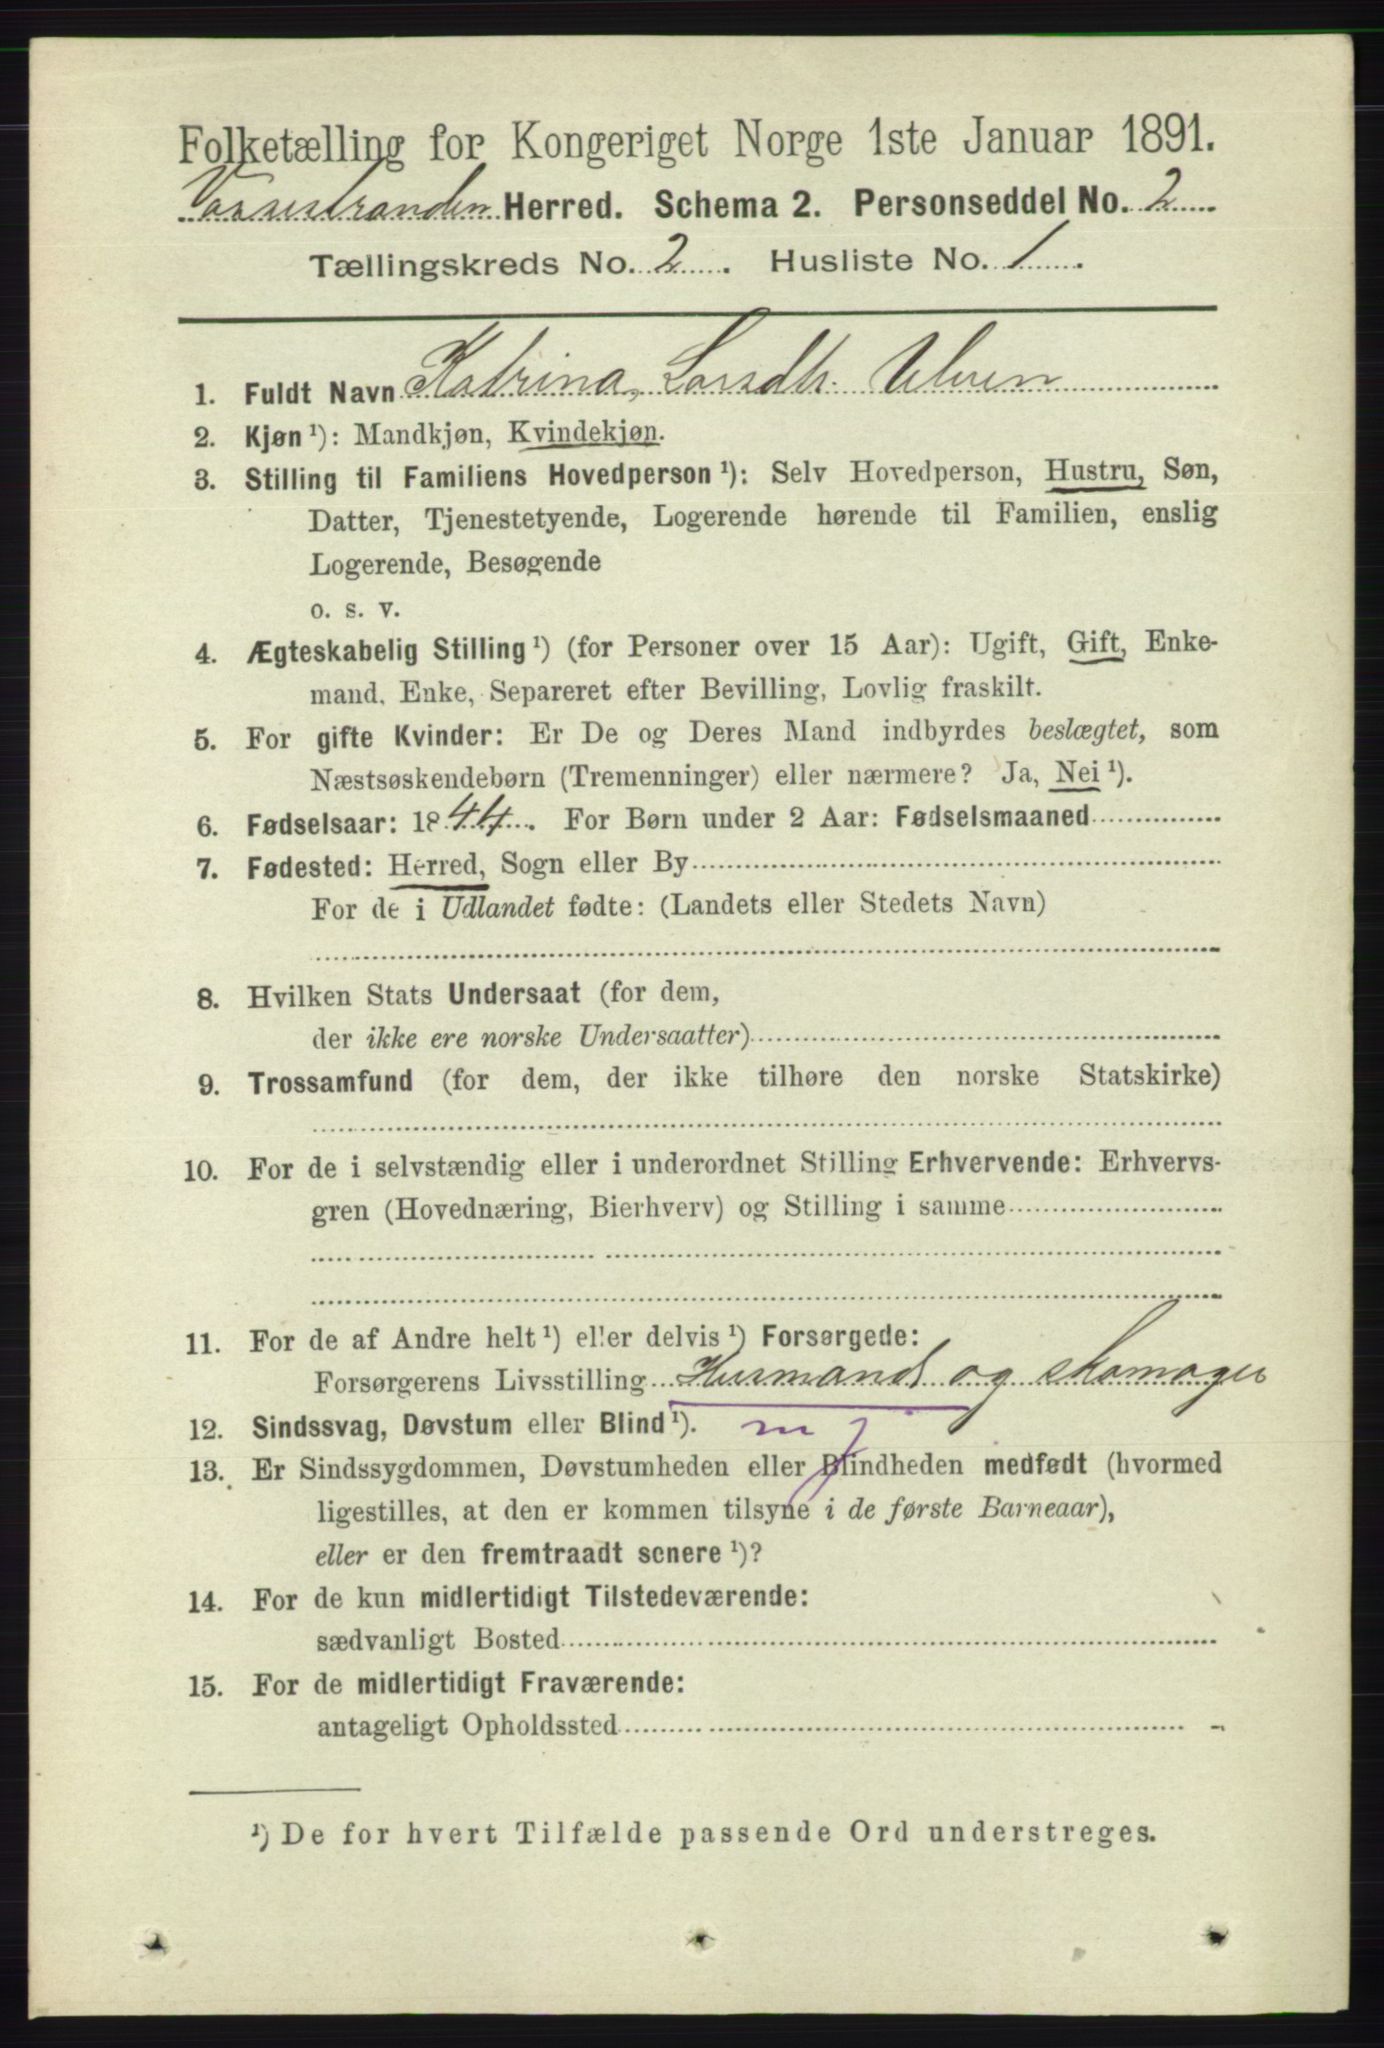 Folketælling for Kongeriget Norge 1ste Januar 1891.
Vossestranden Herred. Schema 2. Personseddel No. 2
Tællingskreds No. 2. Husliste No. 1.
1. Fuldt Navn Katrina Larsdtr. Ulven
2. Kjøn ¹): Mandkjøn, Kvindekjøn.
3. Stilling til Familiens Hovedperson ¹): Selv Hovedperson, Hustru, Søn,
Datter, Tjenestetyende, Logerende hørende til Familien, enslig
Logerende, Besøgende
o. s. v.
4. Ægteskabelig Stilling ¹) (for Personer over 15 Aar): Ugift, Gift, Enke-
mand, Enke, Separeret efter Bevilling, Lovlig fraskilt.
5. For gifte Kvinder: Er De og Deres Mand indbyrdes beslægtet, som
Næstsøskendebørn (Tremenninger) eller nærmere? Ja, Nei ¹).
6. Fødselsaar: 1844. For Børn under 2 Aar: Fødselsmaaned
7. Fødested: Herred, Sogn eller By
For de i Udlandet fødte: (Landets eller Stedets Navn)
8. Hvilken Stats Undersaat (for dem,
der ikke ere norske Undersaatter)
9. Trossamfund (for dem, der ikke tilhøre den norske Statskirke)
10. For de i selvstændig eller i underordnet Stilling Erhvervende: Erhvervs-
gren (Hovednæring, Bierhverv) og Stilling i samme
11. For de af Andre helt ¹) eller delvis ¹) Forsørgede:
Forsørgerens Livsstilling Husmand og skomager
12. Sindssvag, Døvstum eller Blind ¹).
13. Er Sindssygdommen, Døvstumheden eller Blindheden medfødt (hvormed
ligestilles, at den er kommen tilsyne i de første Barneaar),
eller er den fremtraadt senere ¹)?
14. For de kun midlertidigt Tilstedeværende:
sædvanligt Bosted
15. For de midlertidigt Fraværende:
antageligt Opholdssted
¹) De for hvert Tilfælde passende Ord understreges.